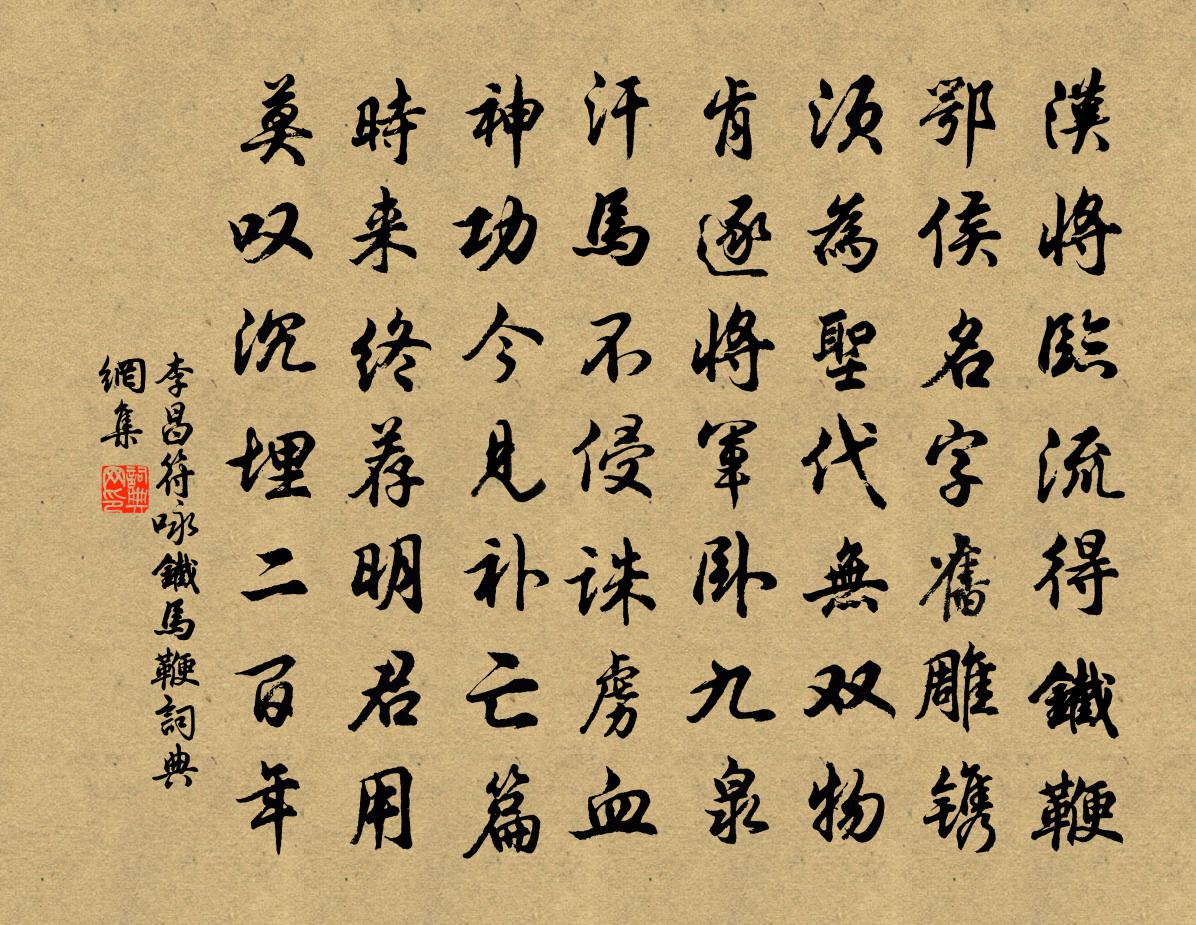 漢將臨流得鐵鞭
鄂侯名字舊雕镌
須為聖代無双物
肯逐將軍卧九泉
汗馬不侵誅虏血
神功今見补亡篇
時来终荐明君用
莫叹沉埋二百年
李昌符咏鐵馬鞭詞典
網集
詞典
网印